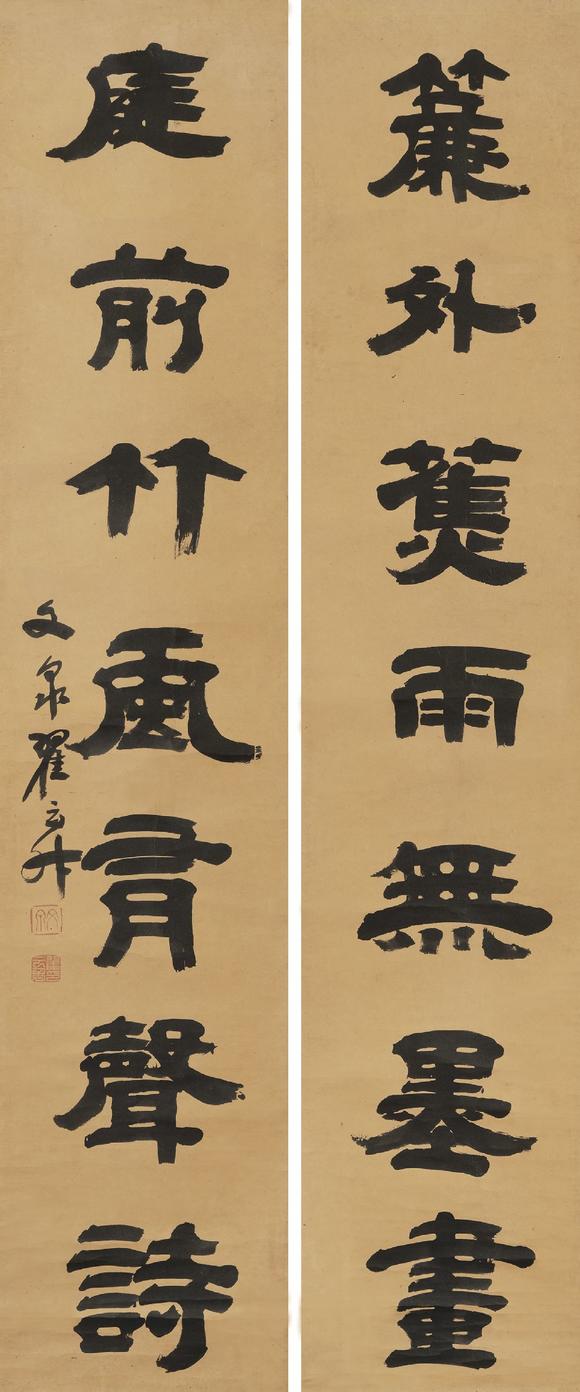 簾外蕉雨無墨畫
庭前竹風有聲詩
文泉翟云升